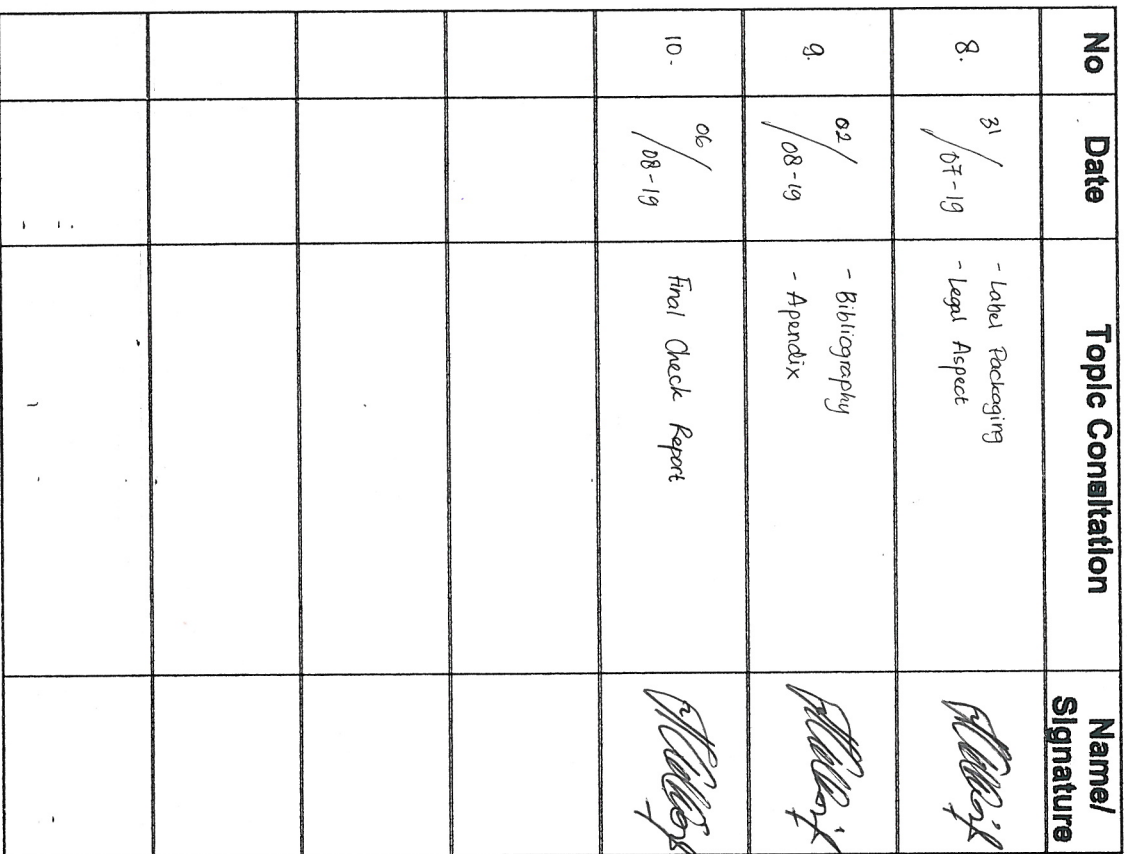 No Date Topic Consltation Name/
Signature
8. 31/07-19 - Label Packaging
- Legal Aspect
9. 02/08-19 - Bibliography
- Apendix
10. 06/08-19 Final Check Report